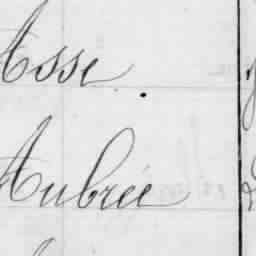 Asse
Aubrée